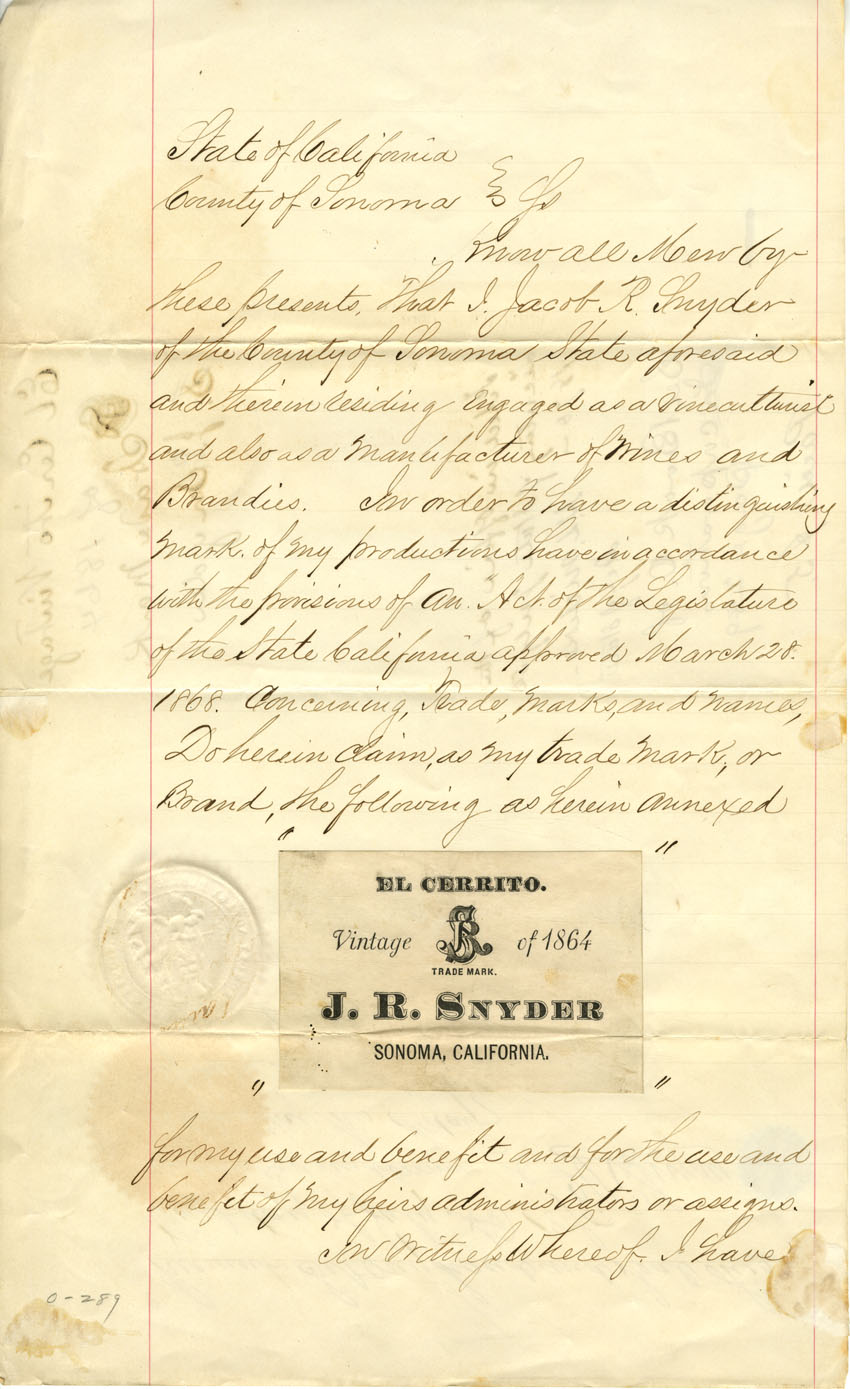 State of California
County of Sonoma } Ss
Know all Men by
these presents, That I. Jacob R. Snyder
of the County of Sonoma State aforesaid
and therein residing Engaged as a Vineculturist
and also as a Manufacturer of Wines and
Brandies. In order to have a distinguishing
Mark. of my productions have in accordance
with the provisions of An. "Act. of the Legislature
of the State California approved March 28.
1868. Concerning, Trade, Marks, and Names,
Do herein Claim, as my trade Mark, or
Brand, the following as herein Annexed
" "
EL CERRITO.
Vintage JRS of 1864
TRADE MARK.
J. R. SNYDER
SONOMA, CALIFORNIA.
" "
for my use and benefit and for the use and
benefit of my heirs administrators or assigns.
In Witness Whereof. I have
0-289